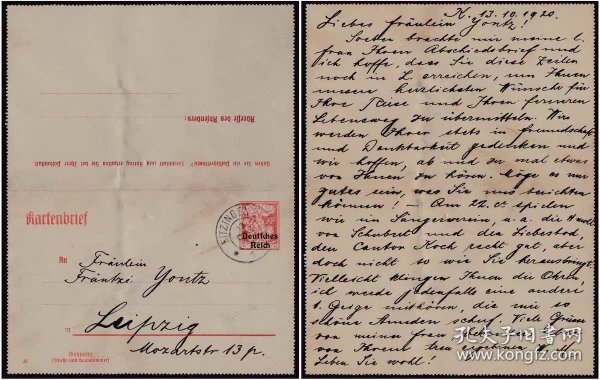 Adresse des Absenders:
Kartenbrief
Deutsches
Reich
KITZINGEN
An
Fräulein
Fräntzi Yontz
in
Leipzig
Mozartstr 13 p.
(Wohnung)
(Straße und Hausnummer)
K. 13.10.1920.
Liebes Fräulein Yontz!
Soeben brachte mir meine l.
Frau Ihren Abschiedsbrief und
ich hoffe, dass Sie diese Zeilen
noch in L. erreichen, um Ihnen
unsere herzlichsten Wünsche für
Ihre Reise und Ihren ferneren
Lebensweg zu übermitteln. Wir
werden Ihrer stets in Freundschaft
und Dankbarkeit gedenken und
wir hoffen, ab und zu mal etwas
von Ihnen zu hören. Möge es nur
gutes sein, was Sie uns berichten
können! – Am 22. ct. spielen
wir im Sängerverein, u. a. die
von Schubert und den Liebestod,
den Cantor Koch recht gut, aber
doch nicht so wie Sie herausbringt.
Vielleicht klingen Ihnen die Ohren,
ich werde jedenfalls eine andere
1. Geige mithören, die mir so
schöne Stunden schuf. Viele Grüsse
von meiner Frau
von Ihrem treu ergebenen
Leben Sie wohl!
孔夫子旧书网
www.kongfz.com